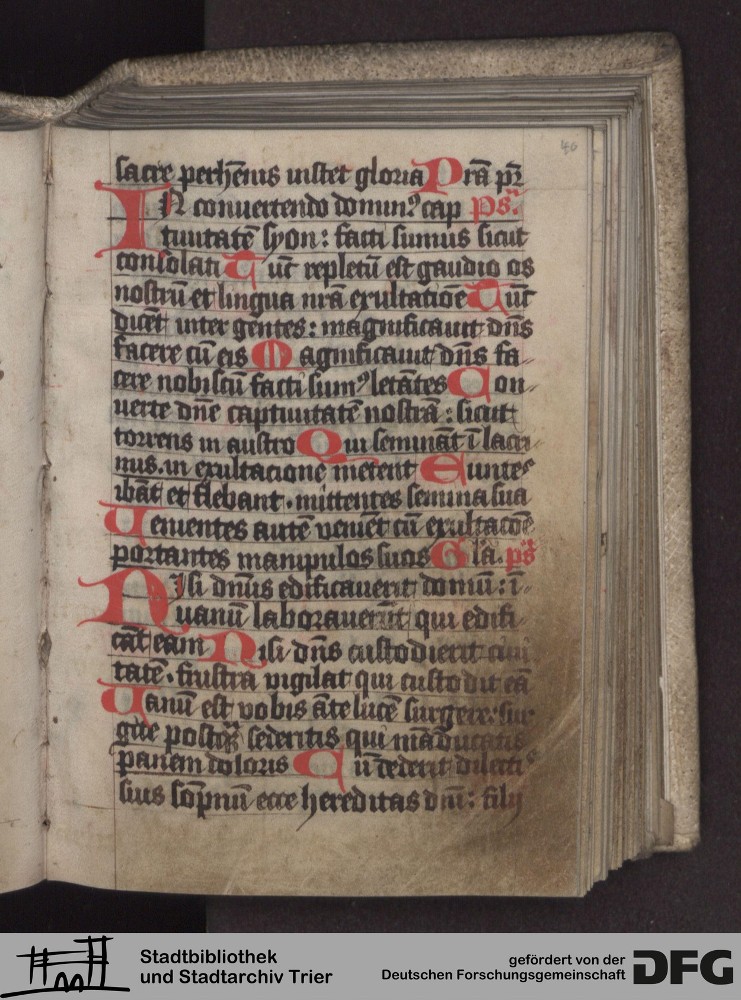 46
sacre perhēnis uistet gloria Prā pr̄
IN conuertendo domin⁹ cap ps.
tiuitatē syon: facti sumus sicut
consolati Tūc repletū est gaudio os
nostrū et lingua nr̄a exultatiōe Tūc
dicēt inter gentes: magnificauit dn̄s
facere cū eis Magnificauit dn̄s fa
cere nobiscū facti sum⁹ letātes Con
uerte dn̄e captiuitatē nostrā: sicut
torrens in austro Qui semināt ī lacri
mis. in exultacione metent Euntes
ibāt et flebant. mittentes semina sua
Uenientes autē veniēt cū exultacōe
portantes manipulos suos Gla. ps
Nisi dn̄us edificauerit domū: ī
uanū laborauerūt qui edifi
cāt eam Nisi dn̄s custodierit ciui
tatē. frustra vigilat qui custodit eā
Uanū est vobis āte lucē surgere: sur
gite postq̄ sederitis qui māducatis
panem doloris Cū dederit dilecti
suis sōpnū ecce hereditas dnī: filij
Stadtbibliothek
und Stadtarchiv Trier
gefördert von der
Deutschen Forschungsgemeinschaft
DFG